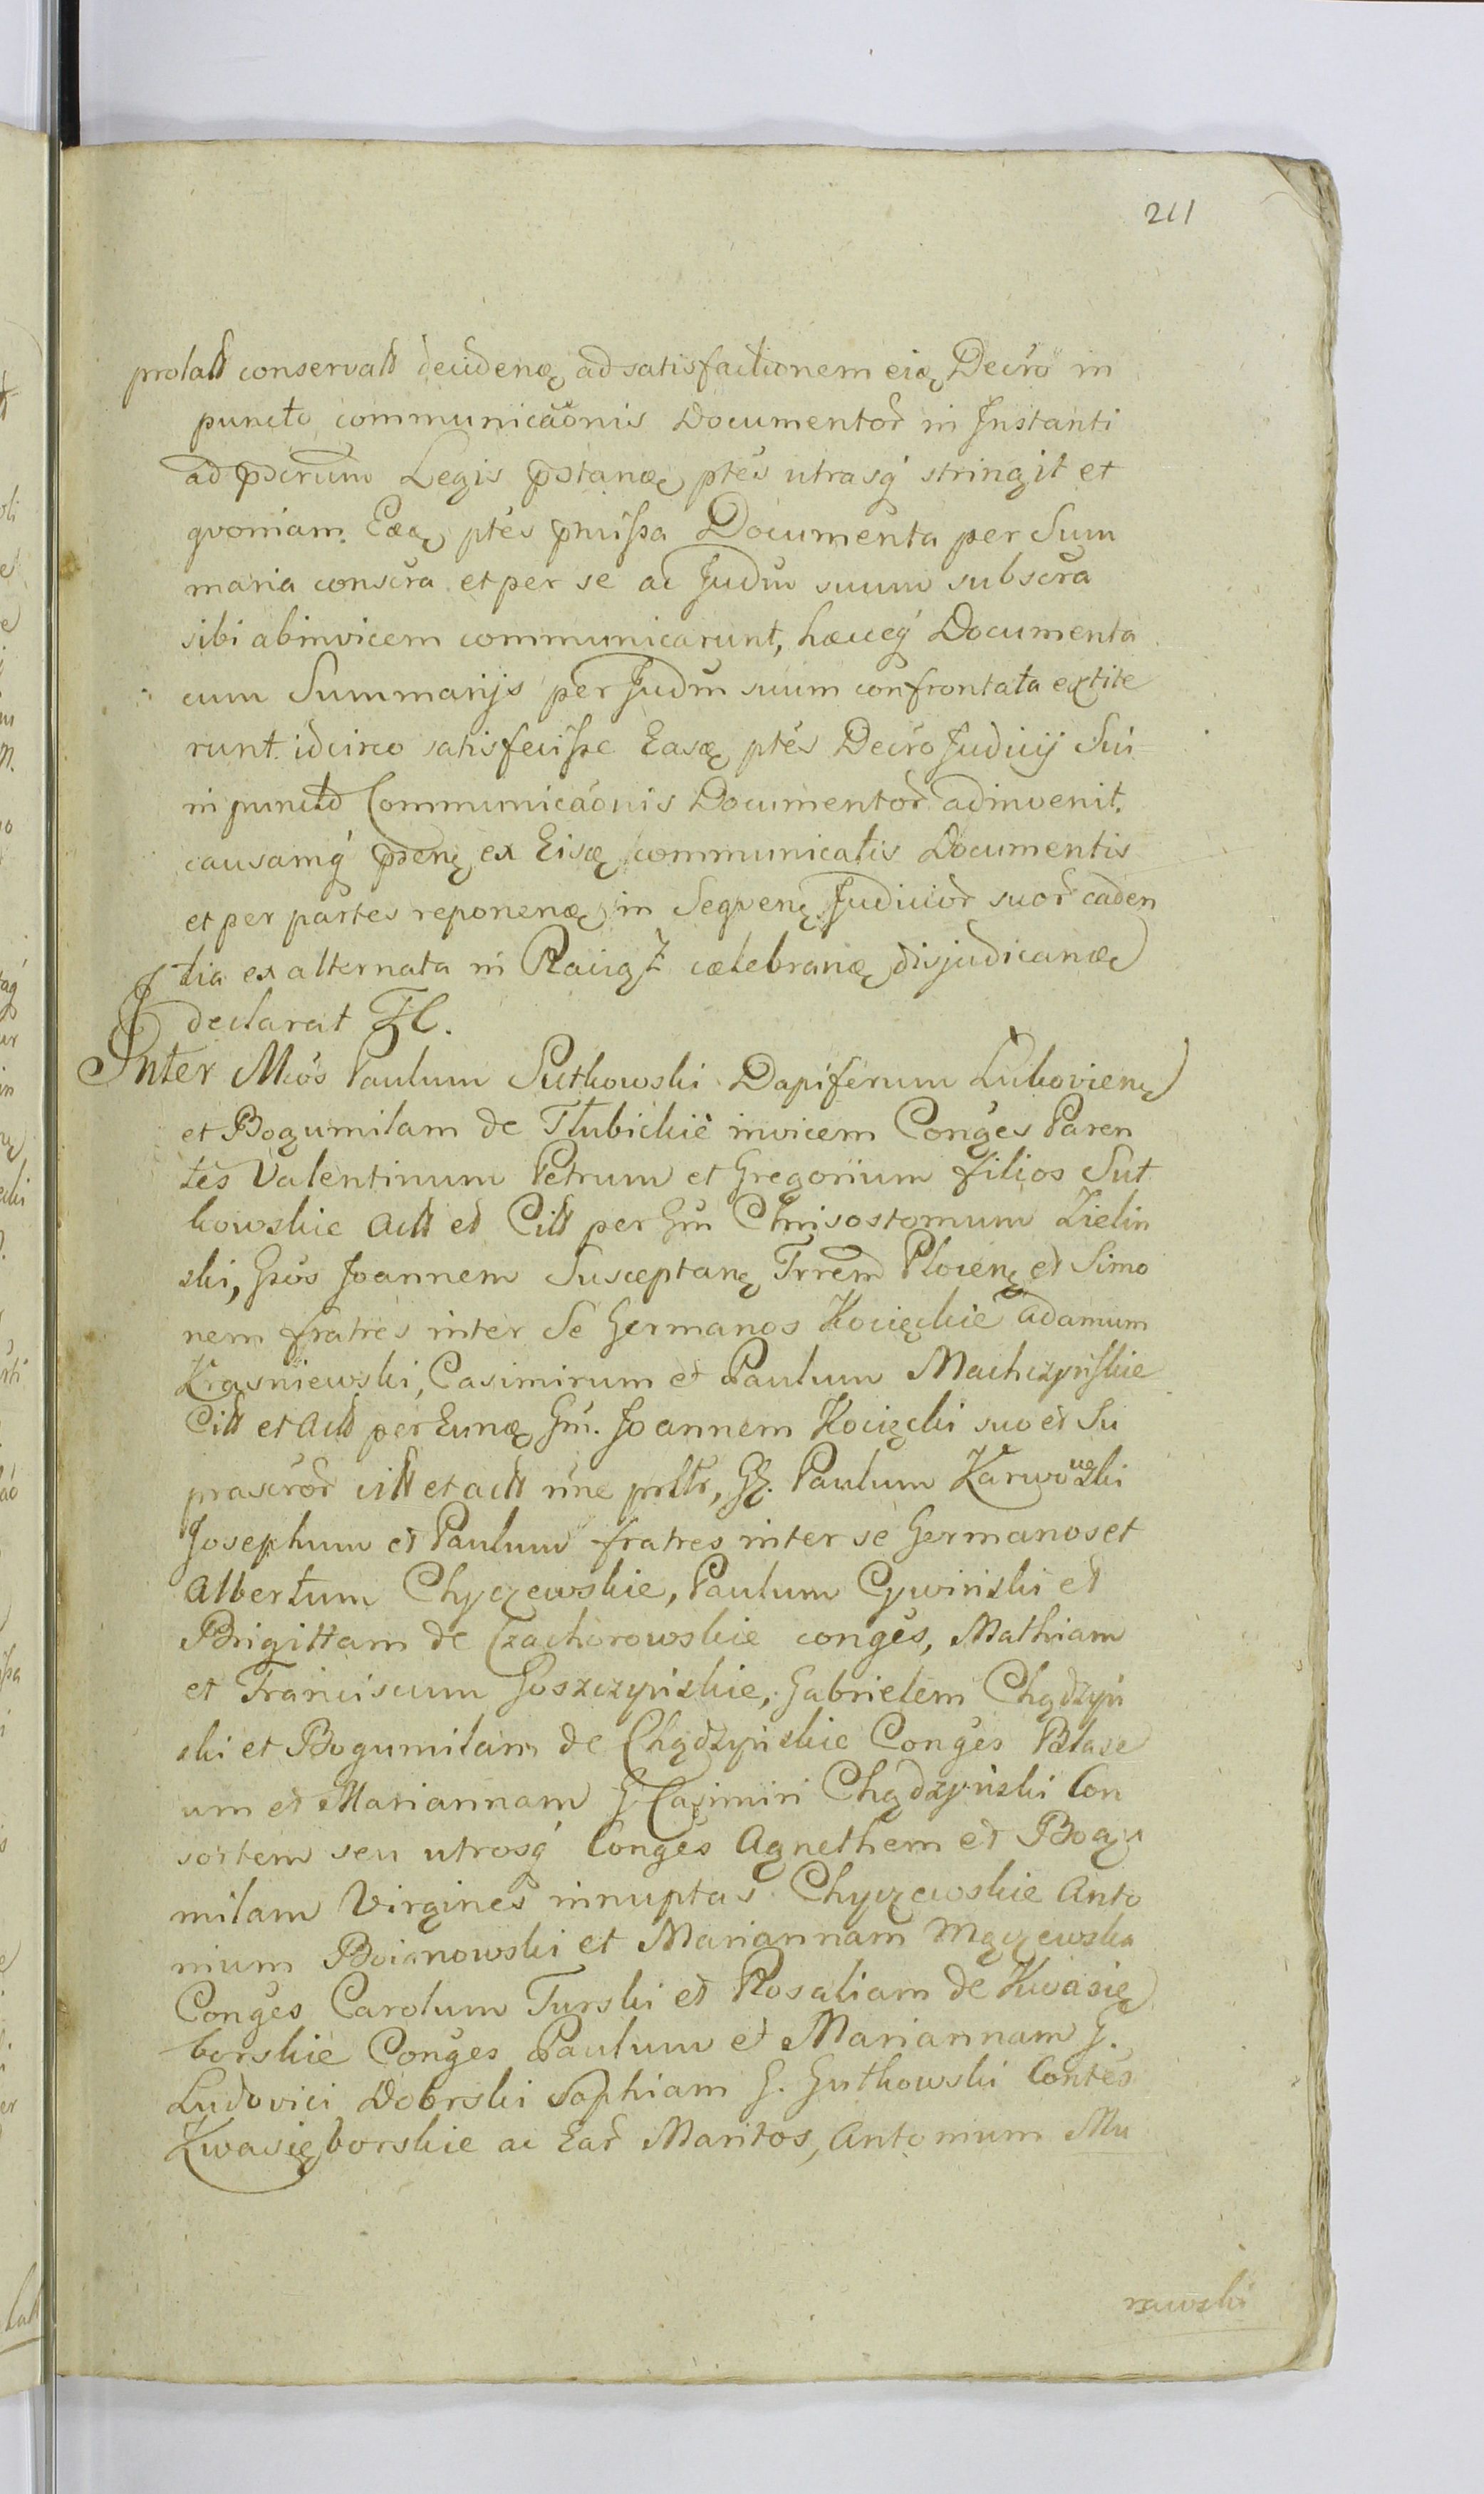 211
prolatt conservatt decidenę ad satisfactionem eię Decro in
puncto communicaonis Documentor in Instanti
ad pscrum Legis pstanę ptes utrasq stringit et
qvoniam Eęę ptes pmissa Documenta per Sum
maria conscra et per se ac Judm suum subscra
sibi abinvicem communicarunt, hæceq Documenta
cum Summarijs per Judm suum confrontata extite
runt idcirco satisfecisse Easę ptes Decro Judicij Sui
in puncto Communicaonis Documentor adinvenit.
causamq pdenę ex Eisę communicatis Documentis
et per partes reponenę in Seqvenę Judicior suor caden
tia ex alternata in Raciąż cælebranę disjudicanę
declarat
Inter Mcos Paulum Sutkowski Dapiferum Lukovienę
et Bogumilam de Tłubickie invicem Conges Paren
tes Valentinum Petrum et Gregorium filios Sut
kowskie Actt et Citt per Gm Chrisostomum Zielin
ski, Gsos Joannem Susceptanę Trrem Plocenę et Simo
nem fratres inter Se Germanos Kocięckie Adamum
Krasniewski, Casimirum et Paulum Machczyńskie
Citt et Actt per Eunę Gm. Joannem Kocięcki suo et Su
prascror citt et actt nne, G. Paulum Karwowski
Josephum et Paulum fratres inter se Germanos et
Albertum Chyczewskie, Paulum Cywiński et
Brigittam de Czachorowskie conges, Mathiam
et Franciscum Goszczyńskie, Gabrielem Chądzyń
ski et Bogumilam de Chądzyńskie Conges Pelase
um et Mariannam G Casimiri Chądzyński Con
sortem seu utrosq Conges Agnethem et Bogu
milam Virgines innuptas Chyczewskie Anto
nium Boianowski et Mariannam Mączewska
Conges Carolum Turski et Rosaliam de Kwasię
borskie Conges Paulum et Mariannam G.
Ludovici Dobrski Sophiam G. Gutkowski Contes
Kwasięborskie ac Ear Maritos, Antonium Mu
rawski